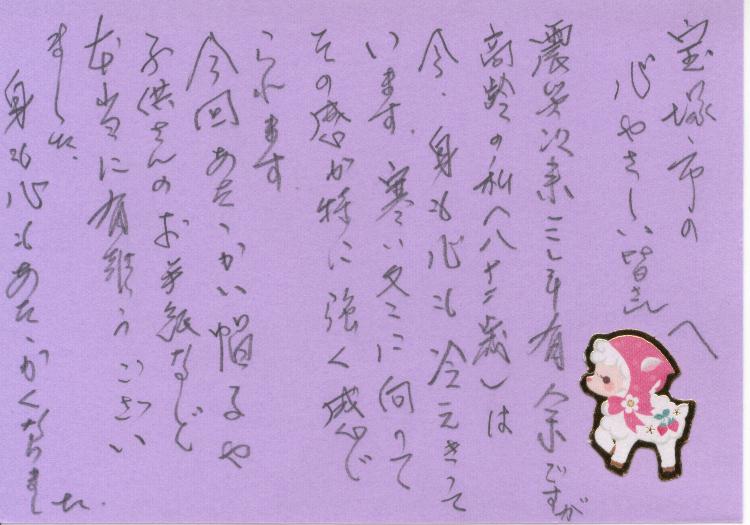 宝塚市の
心やさしい皆さんへ
震災以来三年有余ですが
高齢の私(八十三歳)は
今、身も心も冷えきって
います。寒い冬に向って
その感が特に強く感じ
られます
今回あたたかい帽子や
子供さんのお手紙など
本当に有難うござい
ました。
身も心もあたたかくなりました。